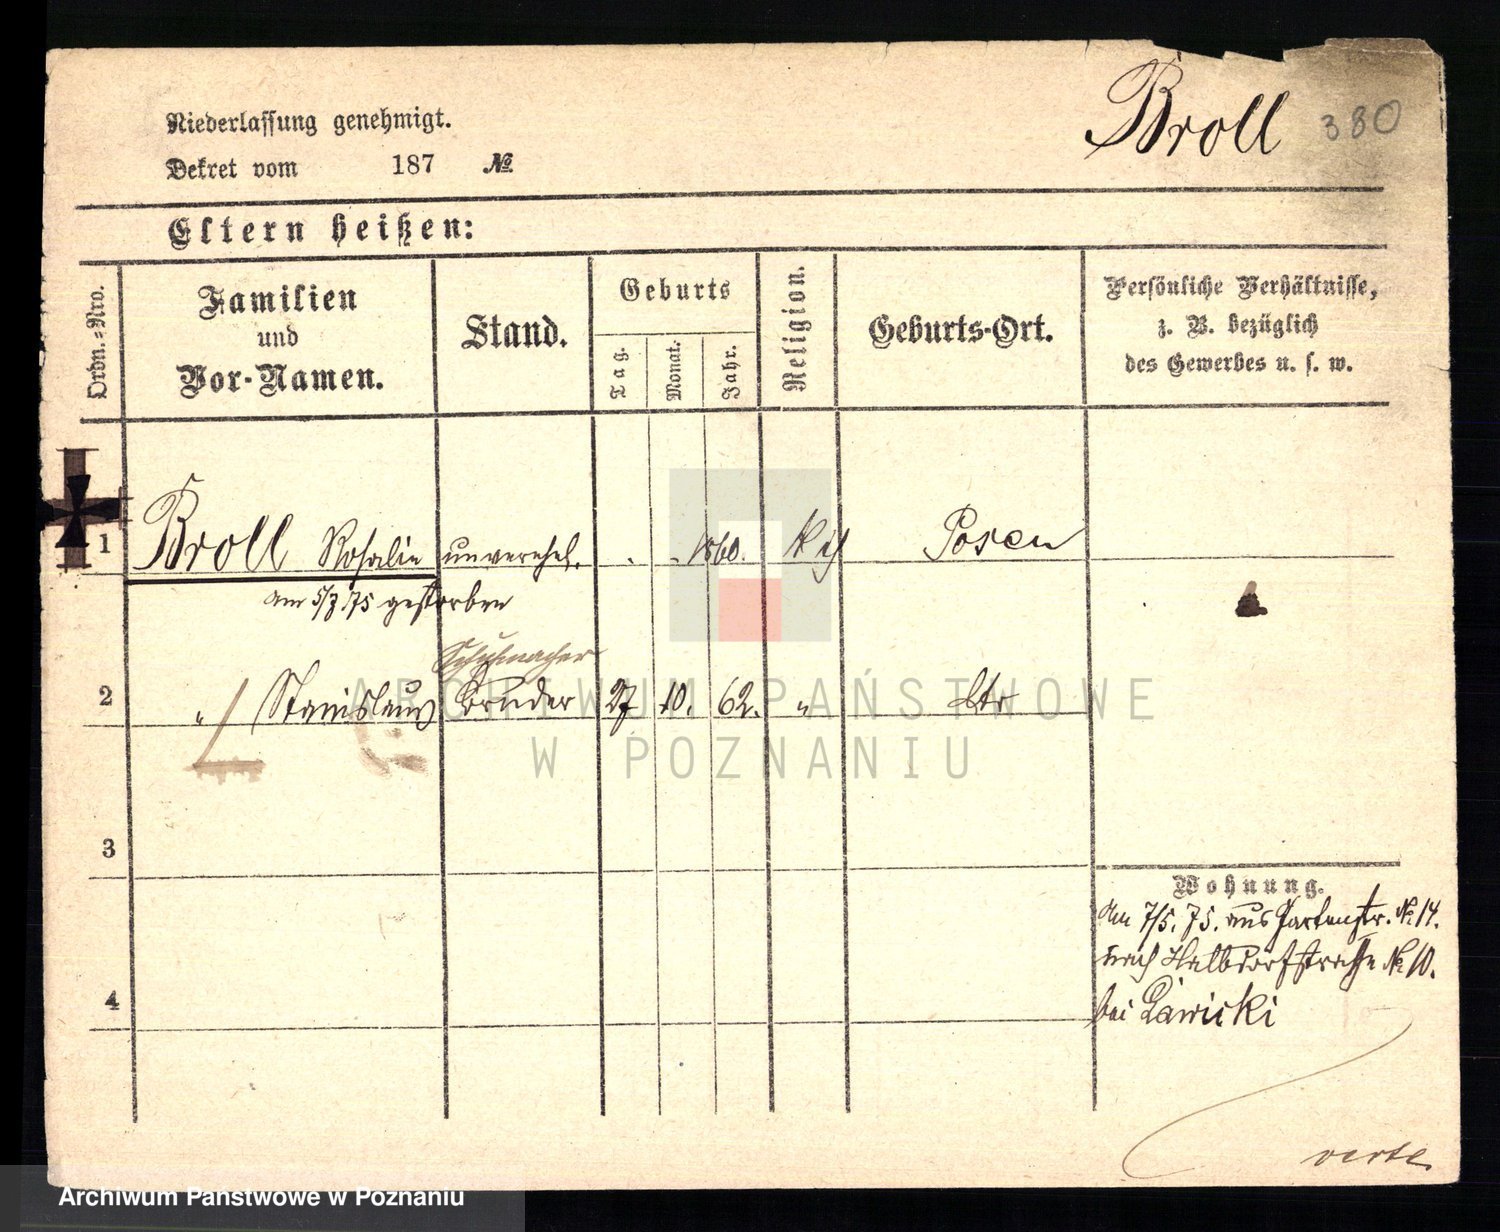 Broll 380
Niederlassung genehmigt.
Dekret vom 187 №
Eltern heißen:
Ordn.-Nro.
Familien
und
Vor-Namen.
Stand.
Geburts
Tag.
Monat.
Jahr.
Religion.
Geburts-Ort.
Persönliche Verhältnisse,
z. B. bezüglich
des Gewerbes u. s. w.
1 Broll Rosalie unverehel. . . 1860. Posen
am 5/7 75 gestorben
Schuhmacher
2 " Stanislaus Bruder 27 10. 62. "
3
4
Wohnung.
Am 7/5. 75. aus Gartenstr. № 14.
nach Halbdorfstrasse № 10.
bei Lawicki
verte
ARCHIWUM PAŃSTWOWE
W POZNANIU
Archiwum Państwowe w Poznaniu